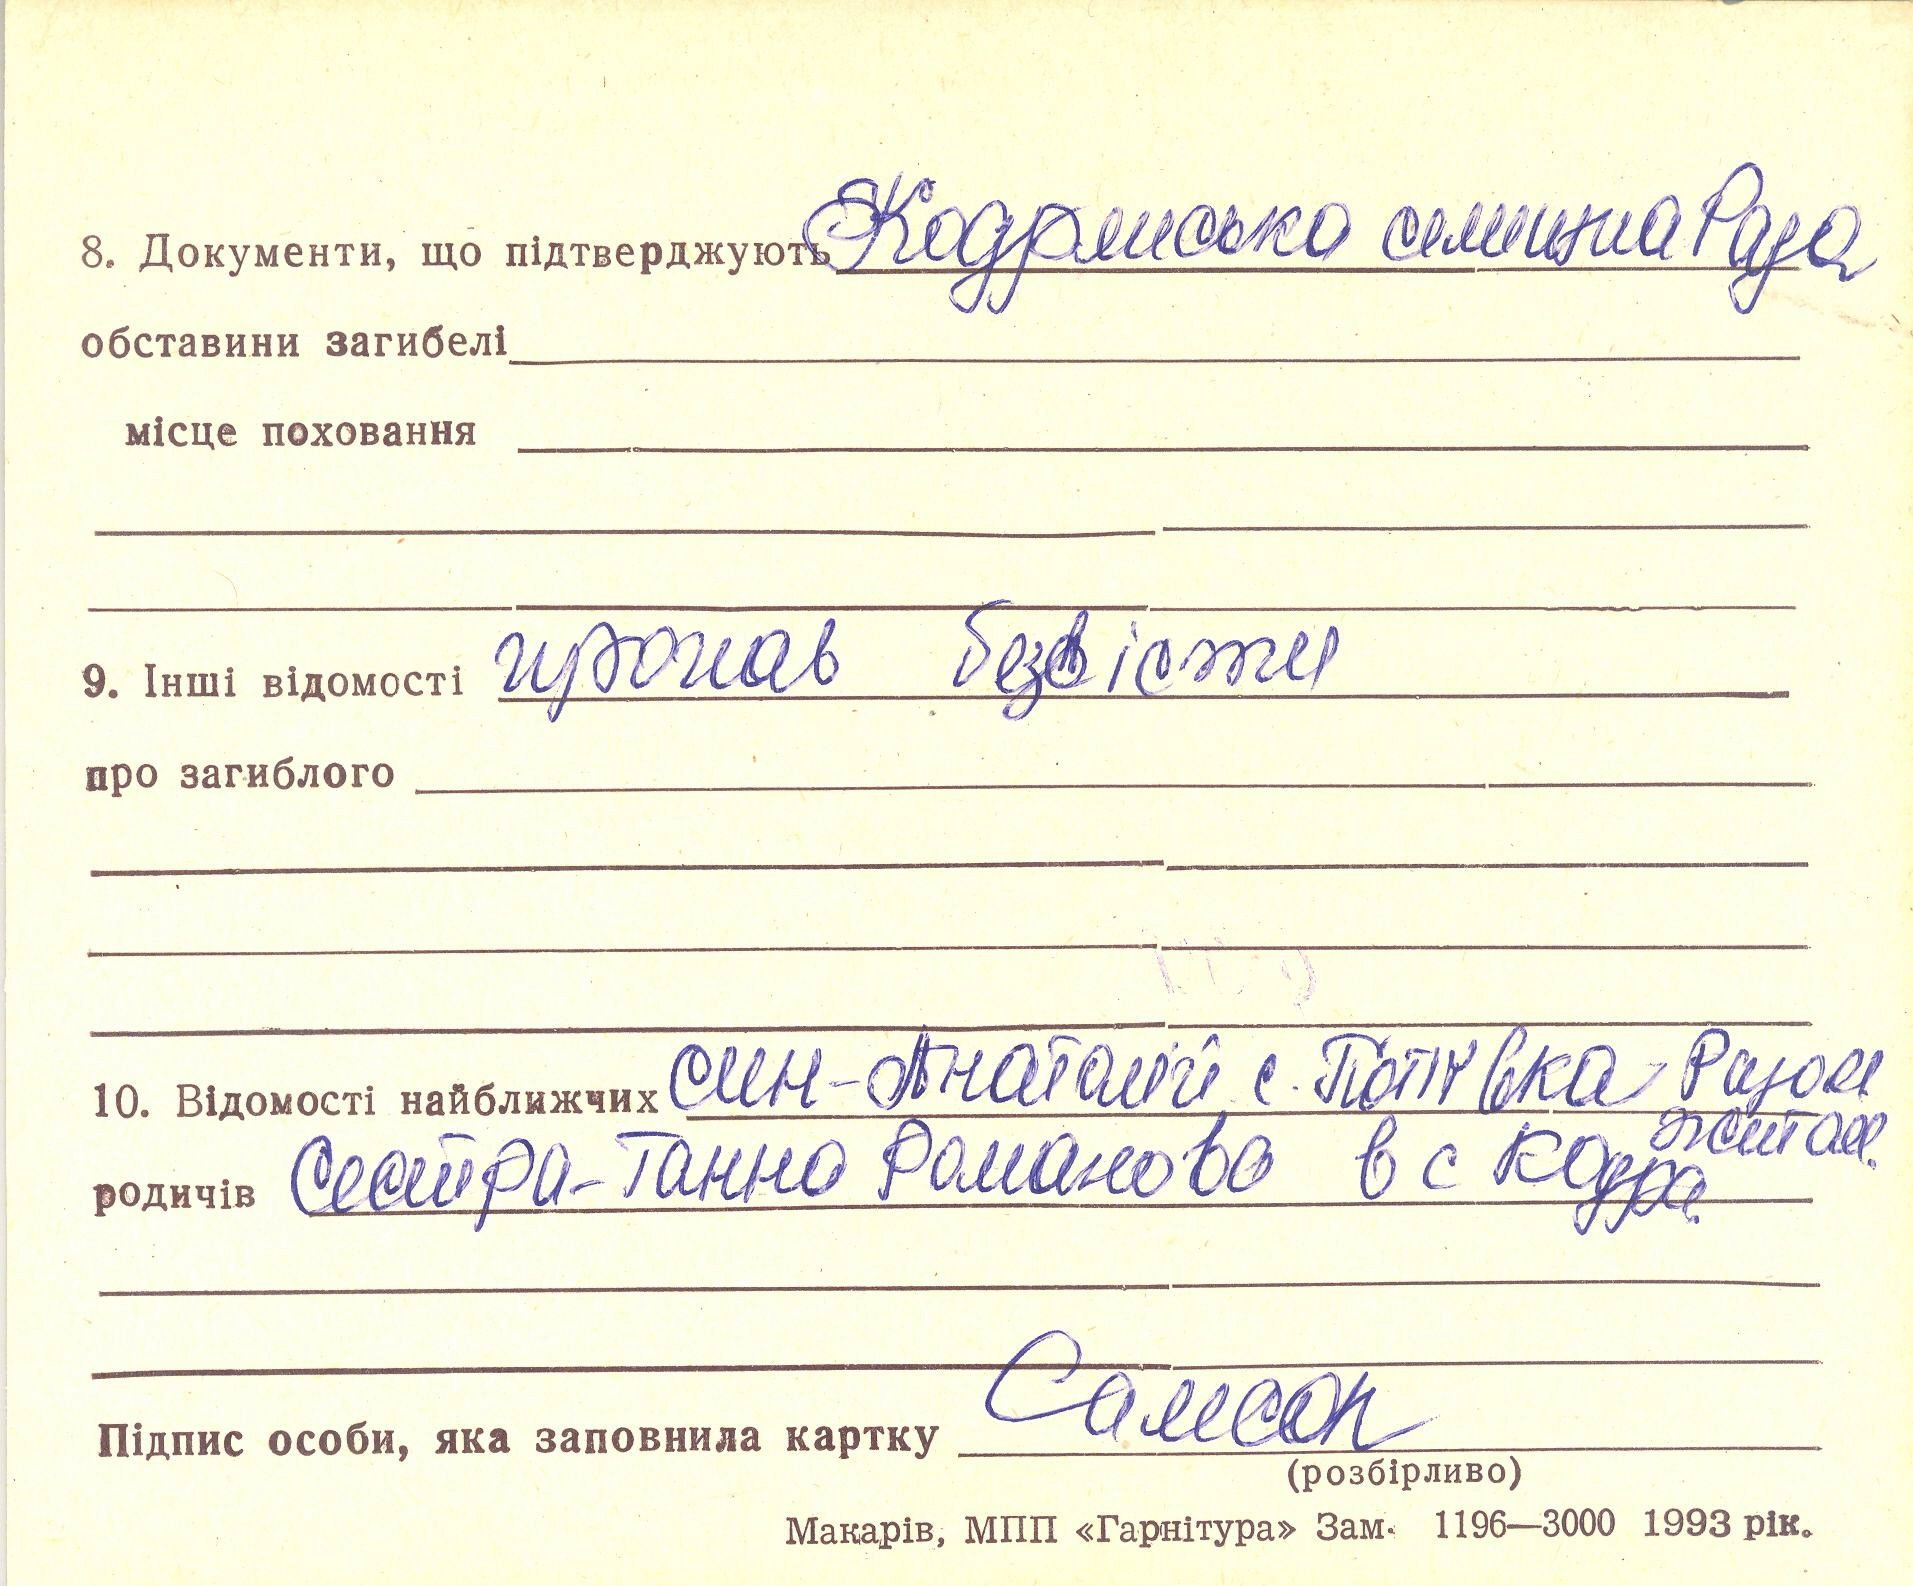 8. Документи, що підтверджують Кодринська селищна Рада
обставини загибелі
місце поховання
9. Інші відомості пропав безвісти
про загиблого
10. Відомості найближчих син - Анатолій с. Попівка - Разом
житом.
родичів Сестра - Ганна Романова в с Кодра
Підпис особи, яка заповнила картку Самсон
(розбірливо)
Макарів, МПП «Гарнітура» Зам. 1196—3000 1993 рік.